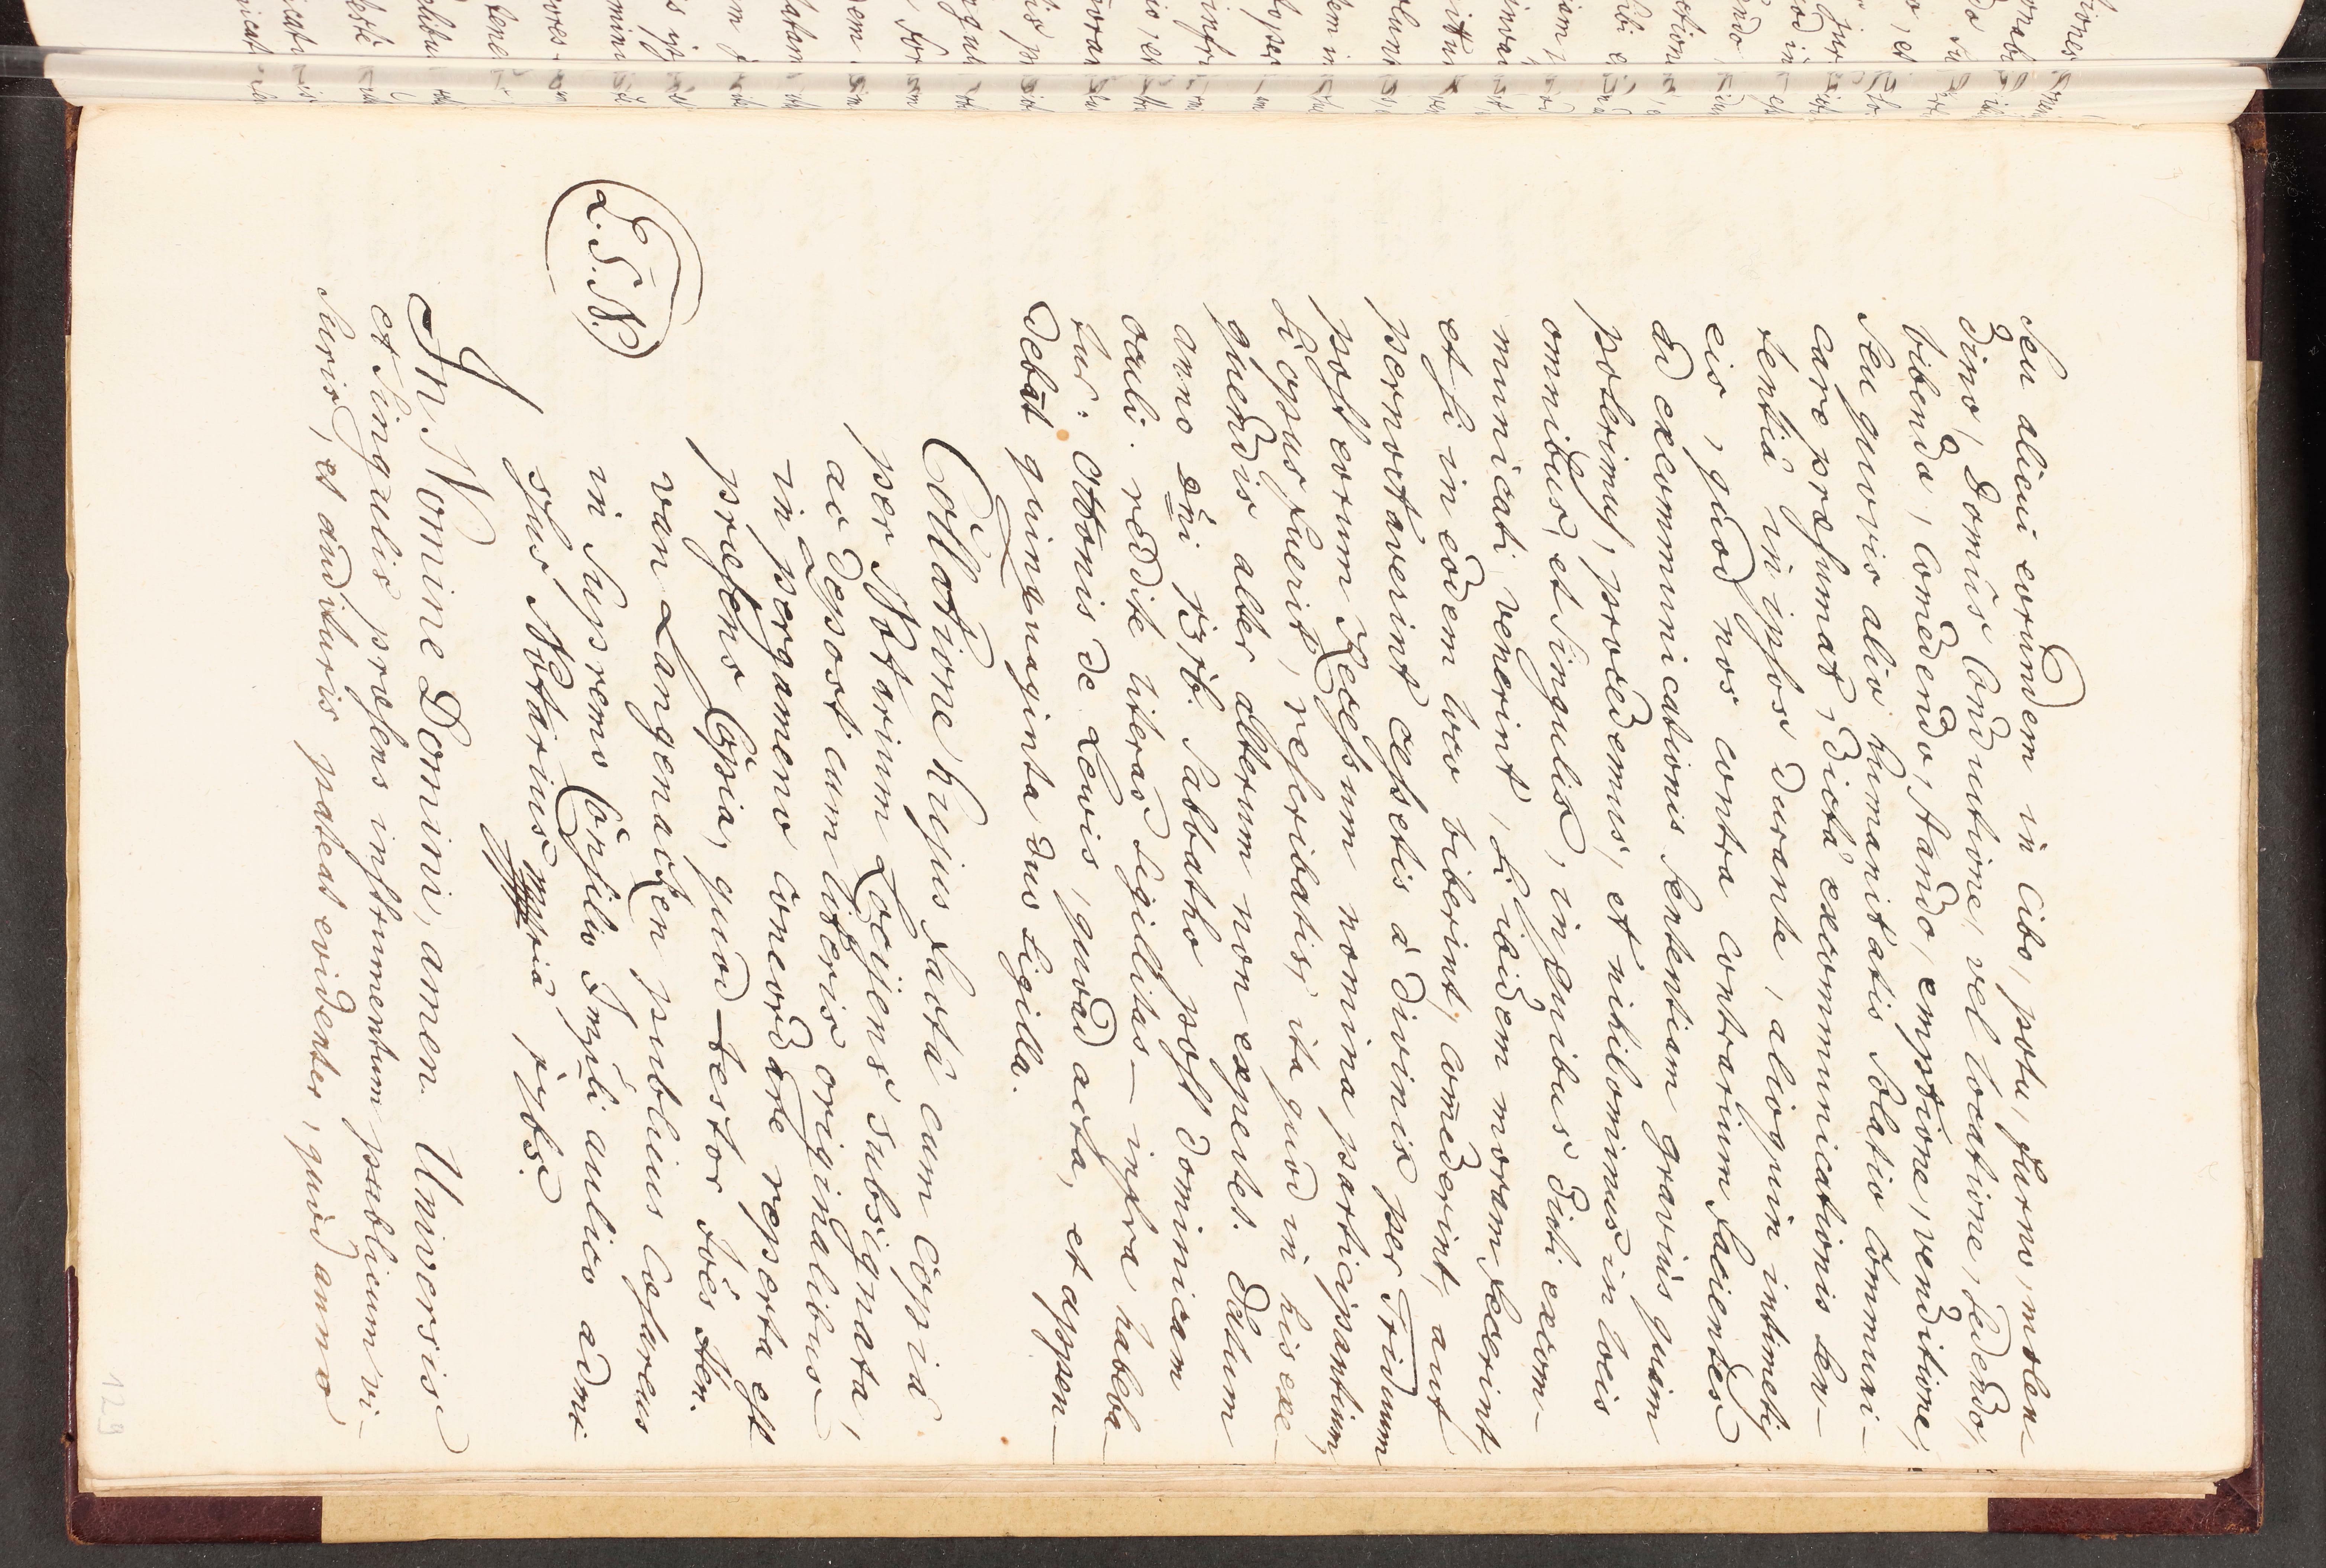 seu alicui eorundem in Cibo, potu, furno, molen-
dino, Domus Conductione, vel locatione, sedendo,
bibendo, Comedendo, stando, emptione, venditione,
seu quovis alio humanitatis Solatio Communi-
care præsumat, dictâ excommunicationis sen-
tentiâ in ipsos durante, alioquin intimetis
eis, quod nos contra contrarium facientes
ad excommunicationis sententiam graviùs quàm
poterimus, procedemus, et nihilominus in locis
omnibus, et Singulis, in quibus dicti excom-
municati venerint, si ibidem moram fecerint,
et si in eodem loco biberint, comederint, aut
pernoctaverint cessetis à divinis per Triduum
post eorum Recessum nomina participantium,
si opus fuerit, rescribatis, ita quod in his exe-
quendis alter alterum non expectet. Datum
anno dñi 1316. Sabbatho post dominicam
oculi. reddite literas Sigillitas infra habeba-
tur: Ottonis de Lewis, quoad acta, et appen-
debāt quinquaginta duo Sigilla.
Collatione hujus factâ cum Copiâ
per Notarium Locijens subsignata,
ac depost cum literis originalibus
in pergameno concordare reperta est
præsens Copia, quod testor Joēs Hen.
van Langenacken publicus Cæsareus
in Supremo Consilio Impli aulico admi-
ssus Notarius mppriâ sijbs.
L.S.N.
In Nomine Domini, amen. Universis
et Singulis præsens instrumentum publicum vi-
suris, et audituris pateat evidenter, quòd anno
129